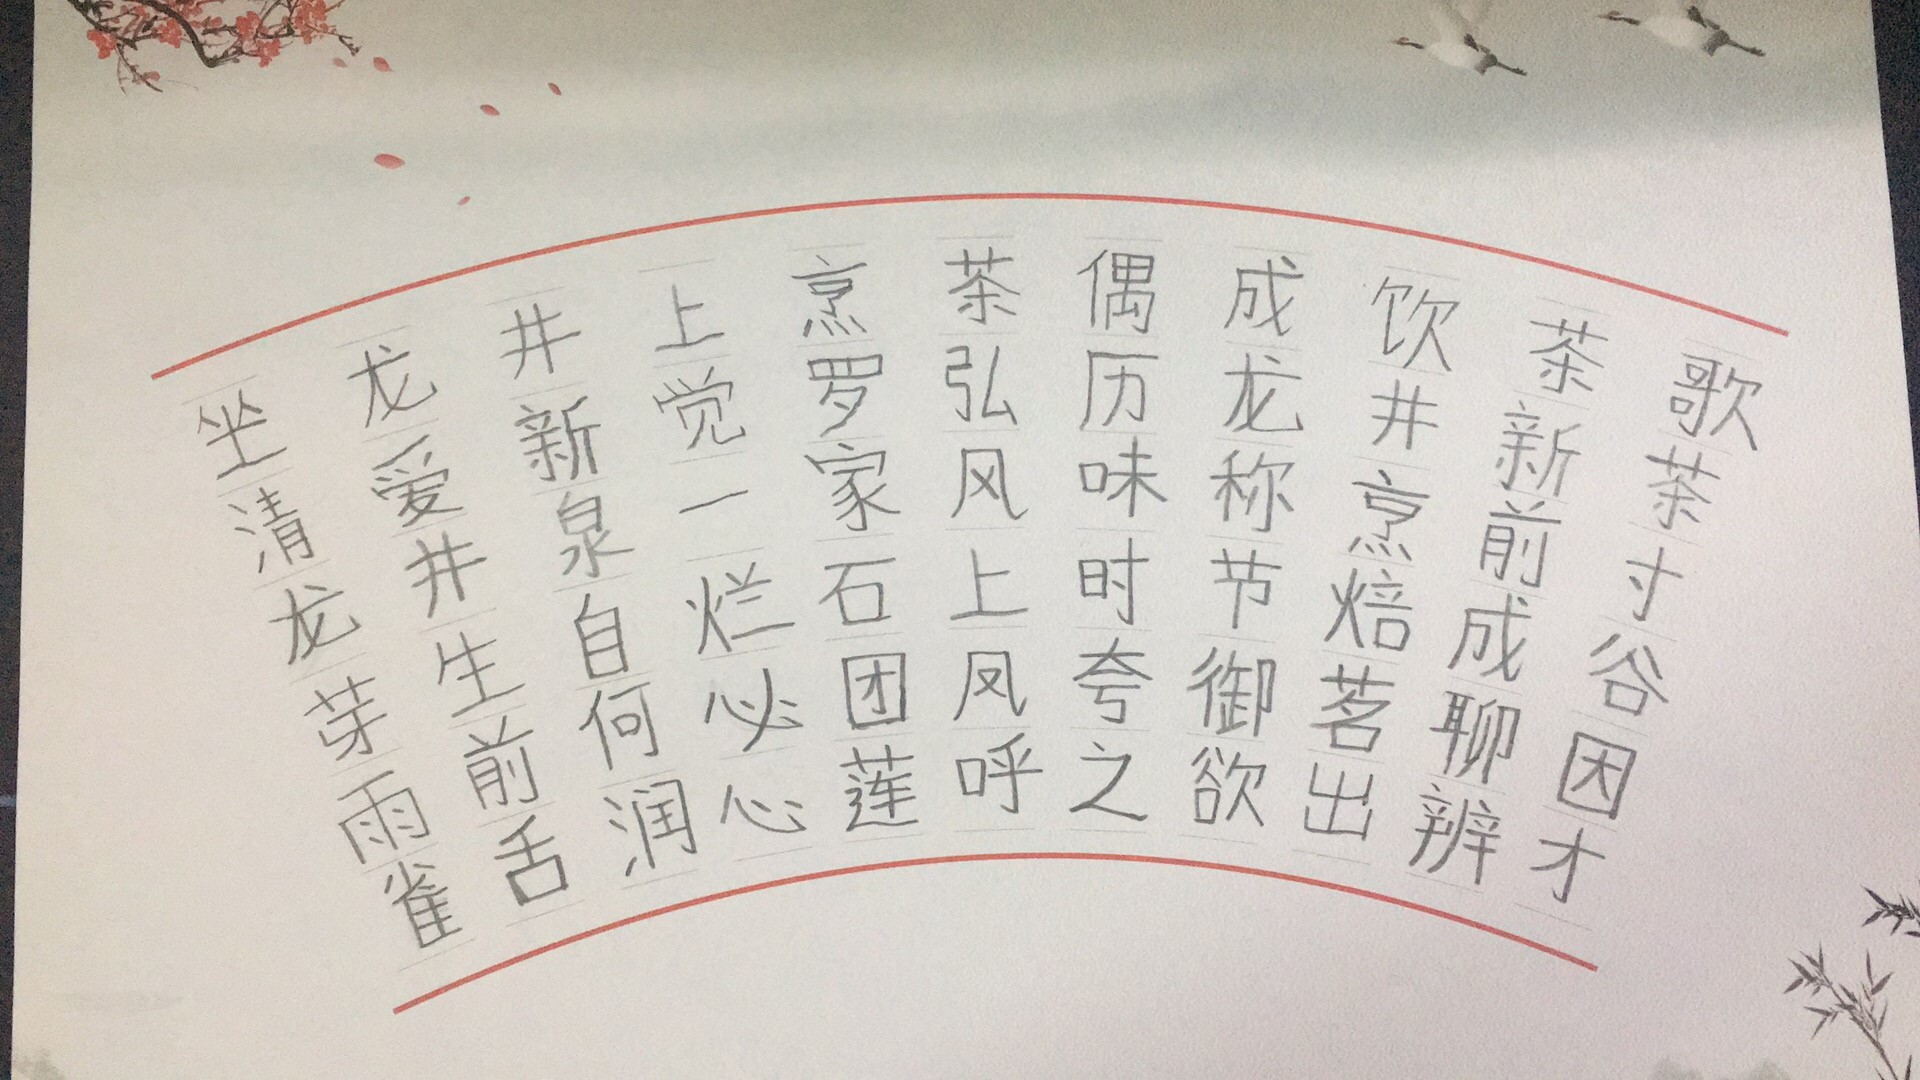 坐龙井上烹茶偶成饮茶歌
清爱新觉罗弘历龙井新茶
龙井泉一家风味称烹前寸
芽生自烂石上时节焙成谷
雨前何必团凤夸御茗聊因
雀舌润心莲呼之欲出辨才